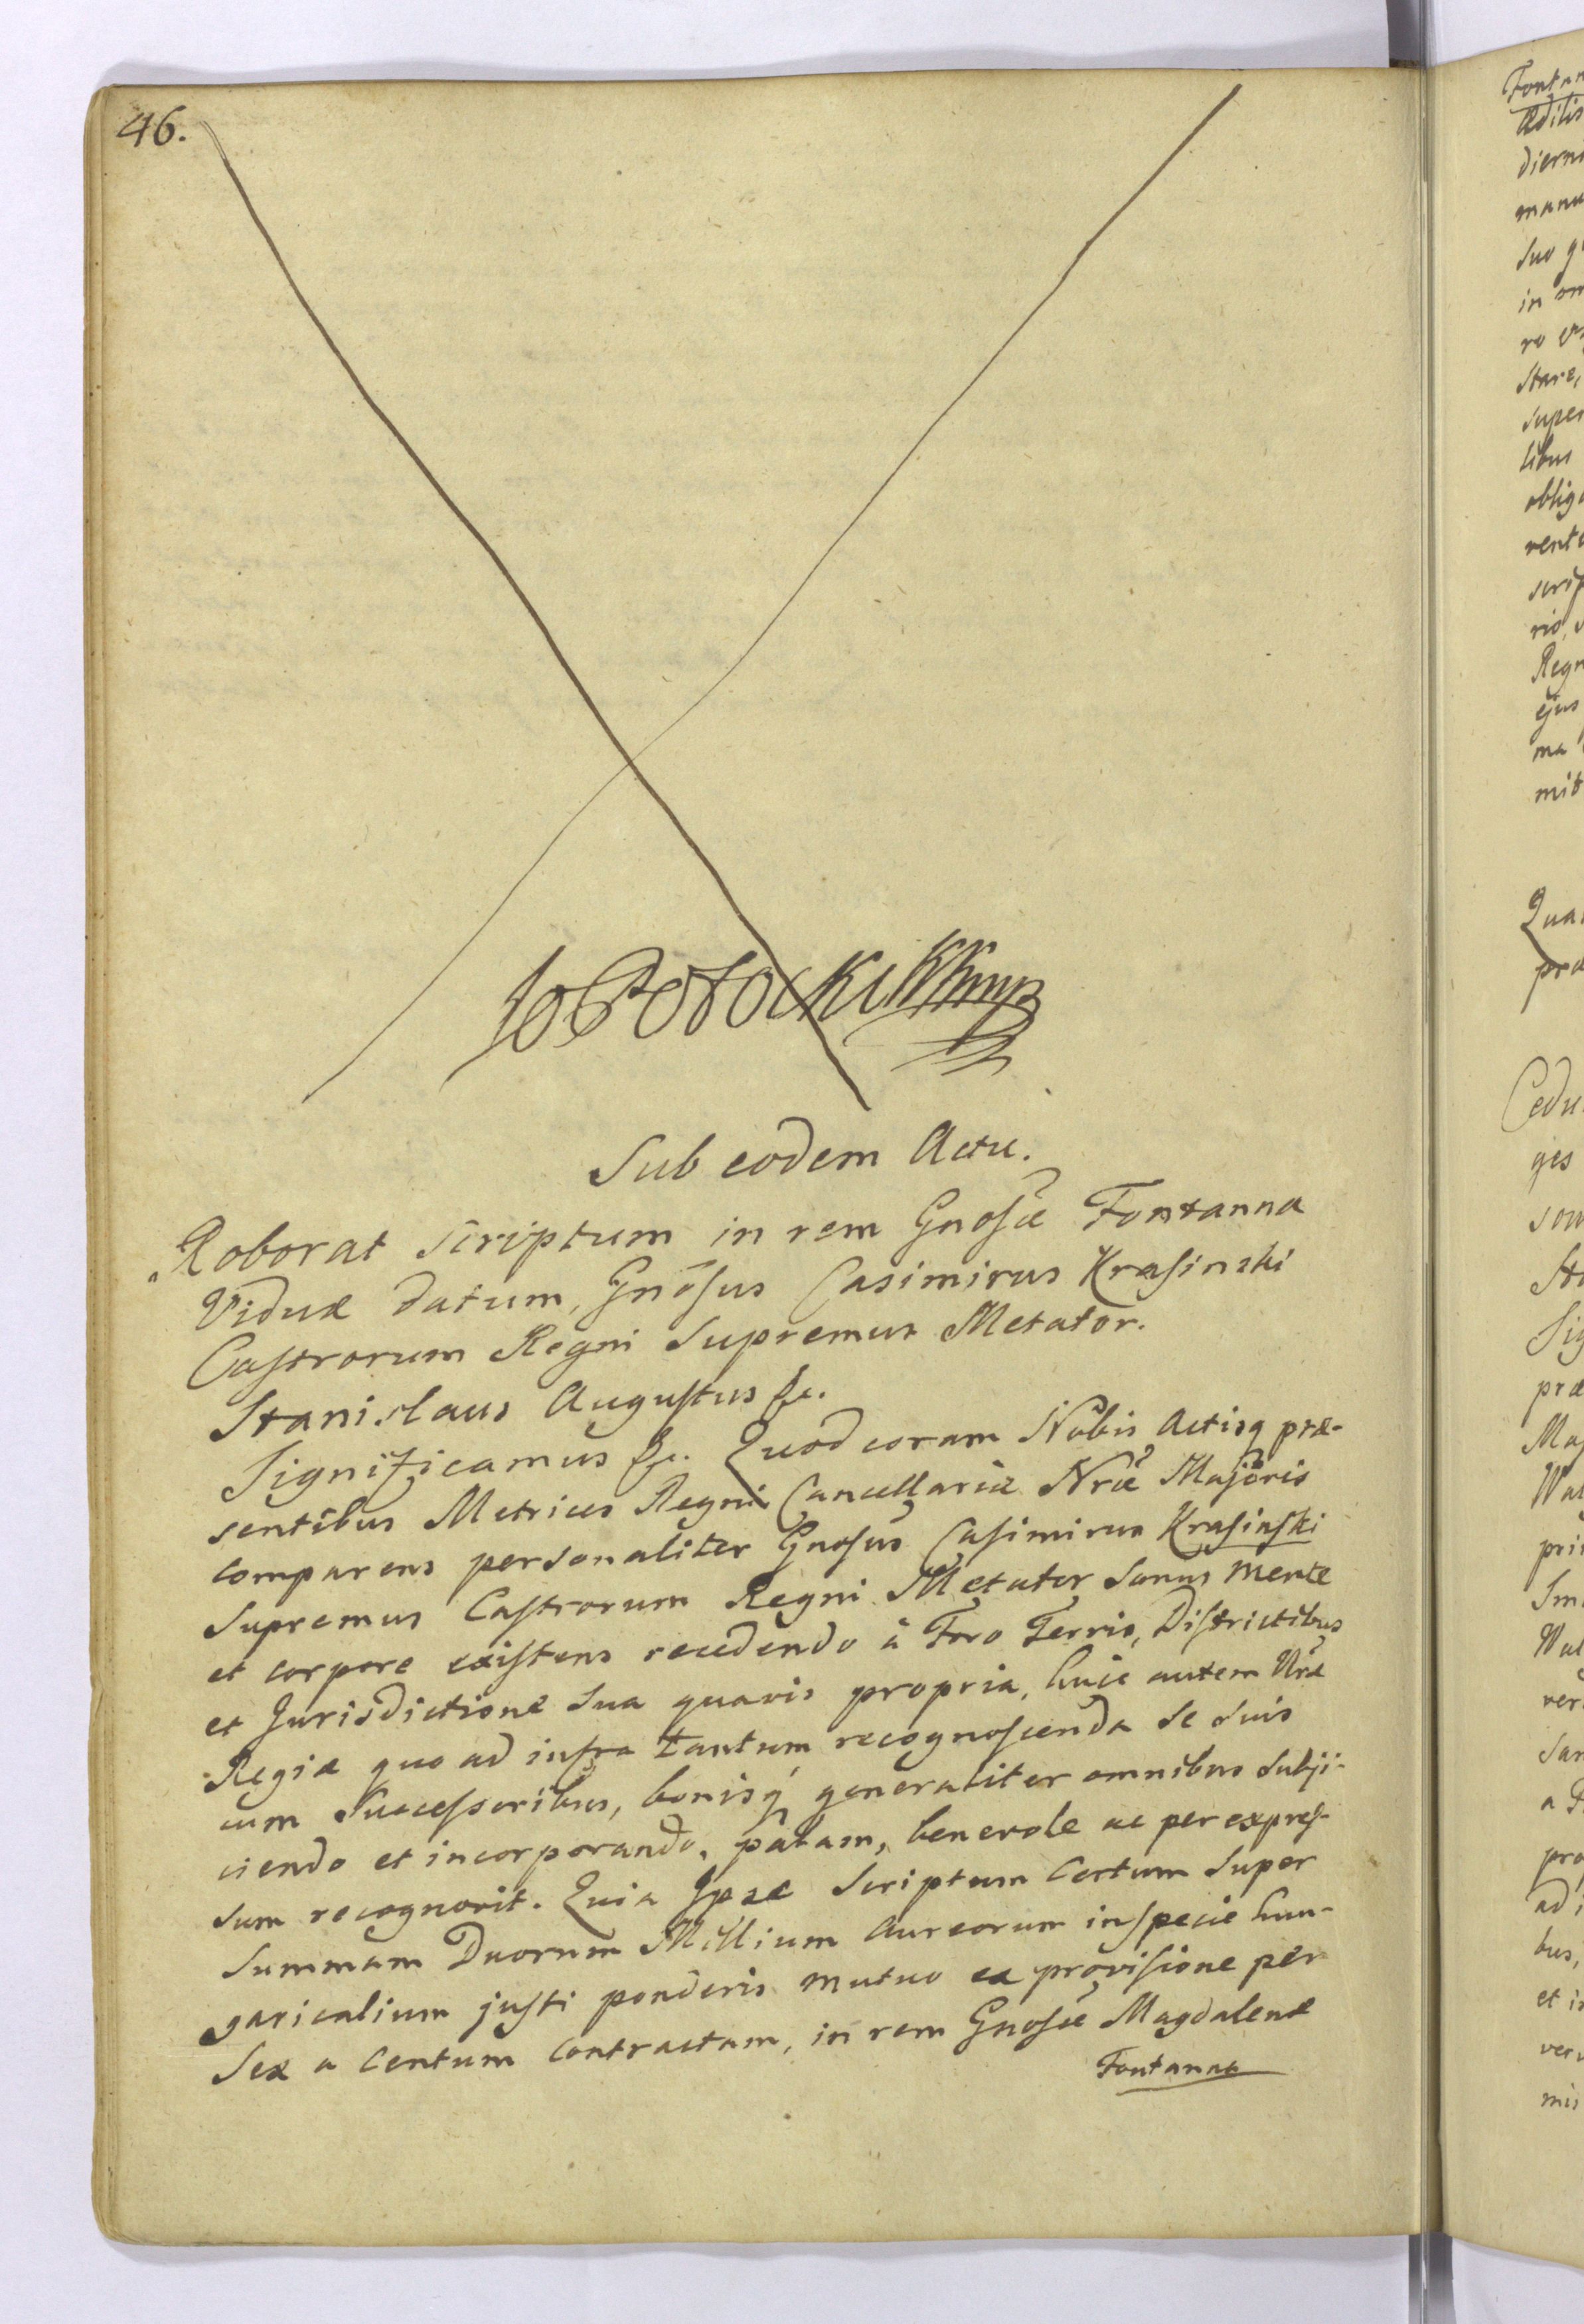 46.
Jo Potocki KKmp
Sub eodem Actu.
Roborat scriptum in rem Gnosæ Fontanna
Viduæ datum, Gnosus Casimirus Krasinski
Castrorum Regni Supremus Metator.
Stanislaus Augustus &c.
Significamus &c. Quod coram Nobis Actisq præ-
sentibus Metrices Regni Cancellariæ Nræ Majoris
comparens personaliter Gnosus Casimirus Krasinski
Supremus Castrorum Regni Metator sanus mente
et corpore existens recedendo à Foro Terris, Districtibus
et Jurisdictione sua quavis propria, huic autem Nræ
Regiæ quo ad infra tantum recognoscenda se suis
cum Successoribus, bonisq generaliter omnibus subji-
ciendo et incorporando, palam, benevole ac per expres-
sum recognovit. Quia Ipse Scriptum Certum Super
Summam Duorum Millium Aureorum in specie hun-
garicalium justi ponderis mutuo ea provisione per
Sex a Centum Contractam, in rem Gnosæ Magdalenæ
Fontanna
Fontan
Ædilis
diern
manu
suo
in
ro
Stare,
super
libus
oblig
rent
scrip
rio,
Regn
ejus
ma
mit
Qua
præ
Cedu
ges
præ
Maj
pri
Wal
ver
pro
ad
bus,
et in
mis